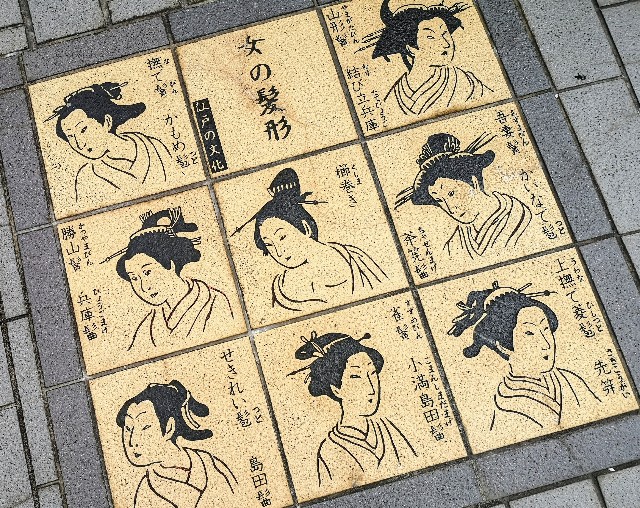 撫て鬢
かもめ髱
女の髪形
江戸の文化
山形鬢
結び立兵庫
勝山鬢
兵庫髷
櫛巻き
吾妻鬢
かいなで髱
せきれい髱
島田髷
雀鬢
小満島田髷
上撫で菱髱
先笄